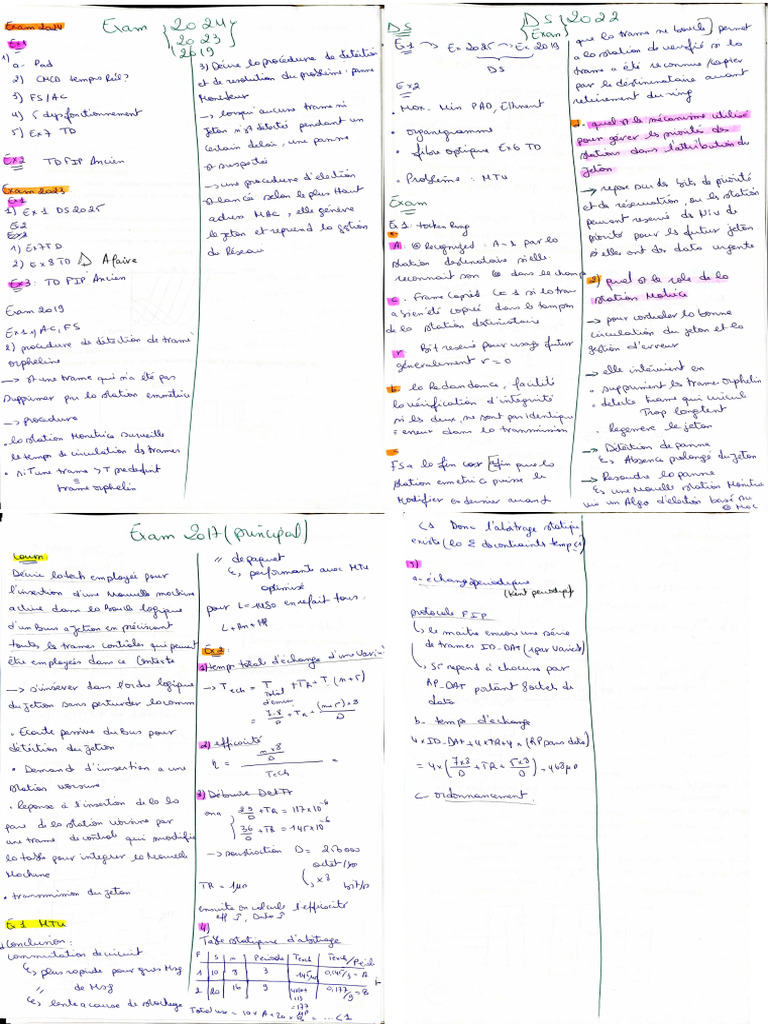 Exam 2024
Exam 2024
2023
2019
Ex1
1)
a- Pad
2) CMCD temps Réel?
3) FS/AC
4) 5 dysfonctionnement
5) Ex7 TD
Ex2 TD FIP Ancien
Exam 2023
Ex1
1) Ex1 DS 2025
Ex2
1) Ex7 TD
2) Ex8 TD A faire
Ex3: TD FIP Ancien
Exam 2019
Ex1 y AC, FS
2) procedure de détection de trame
orpheline
→ st une trame qui n'a été pas
supprimer par la station emettrice
→ Procedure
• la station Monitrice surveille
le temps de circulation des trames
• si T une trame > T predefinit
trame orphelin
3) Décrire la procédure de détection
et de resolution du problème: panne
Moniteur
→ lorsqu'aucune trame ni
jeton n'st détectés pendant un
certain delais, une panne
st suspectée
→ une procedure d'élection
st lancée selon le plus Haut
adress MAC, elle génère
le jeton et reprend la gestion
du Réseau
DS
DS 2022
Exam
Ex1 → Ex 2025 → Ex 2019
DS
Ex2
• Mon. Min PAD, Ethernet
• organigramme
• fibre optique Ex6 TD
• Problème: MTU
Exam
Ex1: Tocken Ring
A @ Recognized: A=1 par la
station destinataire si elle
reconnait son @ dans le champ
c. Frame Copied C=1 si la trame
a bien été copiée dans le tampon
de la station destinataire
r Bit reservé pour usage futur
généralement r=0
b. la Redondance, facilite
la vérification d'intégrité
si les deux, ne sont pas identique
= erreur dans la transmission
c
FS a la fin car afin que la
station emettrice puisse la
Modifier en dernier avant
que la trame ne boucle permet
a la station de verifié si la
trame a été reconnue/copier
par le destinataire avant
retirement du ring
d. quel st le mécanisme utilisé
pour gérer la priorité des
stations dans l'attribution du
jeton
→ repose sur des bits de priorité
et de réservation, ou les station
peuvent reservé des Niv de
priorité pour les futur jeton
si elles ont des data urgente
2) quel st le role de la
station Monitrice
→ pour controler la bonne
circulation du jeton et la
gestion d'erreur
→ elle intervient en
• supprimant les trame orphelin
• detecte trame qui circul
Trop longtemps
• Regenere le jeton
→ Détection de panne
↳ Absence prolongé du jeton
→ Resoudre la panne
↳ une Nouvelle station Monitrice
via un Algo d'élection basé sur
@ MAC
Exam 2017 (principal)
Cours
Décrire la tach employée pour
l'insertion d'une Nouvelle machine
active dans la boucle logique
d'un bus a jeton en précisant
toutes les trames contrôles qui peuvent
être employées dans ce contexte
→ s'insérer dans l'ordre logique
du jeton sans perturber la comm
• Ecoute passive du bus pour
détection du jeton
• Demand d'insertion a une
station voisine
• Reponse à l'insertion de la
part de la station voisine par
une trame de contrôle qui modifie
la table pour intégrer la Nouvelle
Machine
• transmission du jeton
Ex1 MTU
Conclusion:
commutation de circuit
↳ plus rapide pour gros Msg
" de Msg
↳ lente a cause de stockage
" de paquet
↳ performante avec MTU
optimisé
pour L=1480 on refait tous.
Ex2:
1) temps total d'échange d'une variable
2) efficacité
3) Débit
ona
29/D + TR = 117×10⁻⁶
36/D + TR = 145×10⁻⁶
→ soustraction D = 250000
octet/s
×8
bit/s
TR = 1µs
ensuite on calcule l'efficacité
4)
Table statique d'arbitrage
P S n Periode Tech Tech/Period
1 10 8 3 145µ 0,145/3 = A
2 20 16 9 177 0,177/9 = B
Total use = 10×A+20×B = ... <1
↳ Donc l'arbitrage statique
existe (la Σ des contraints temps<1)
5)
a- échange periodique
protocole FIP
↳ le maitre envoie une série
de trames ID_DAT (1 par variable)
↳ Sx repend à chacune par
RP_DAT portant 8 octet de
data
b- temp d'échange
4×ID_DAT+4×TR+4×(RP sans data)
= 4×(7×8/D + TR + 5×8/D) = 468µs
c- ordonnancement.